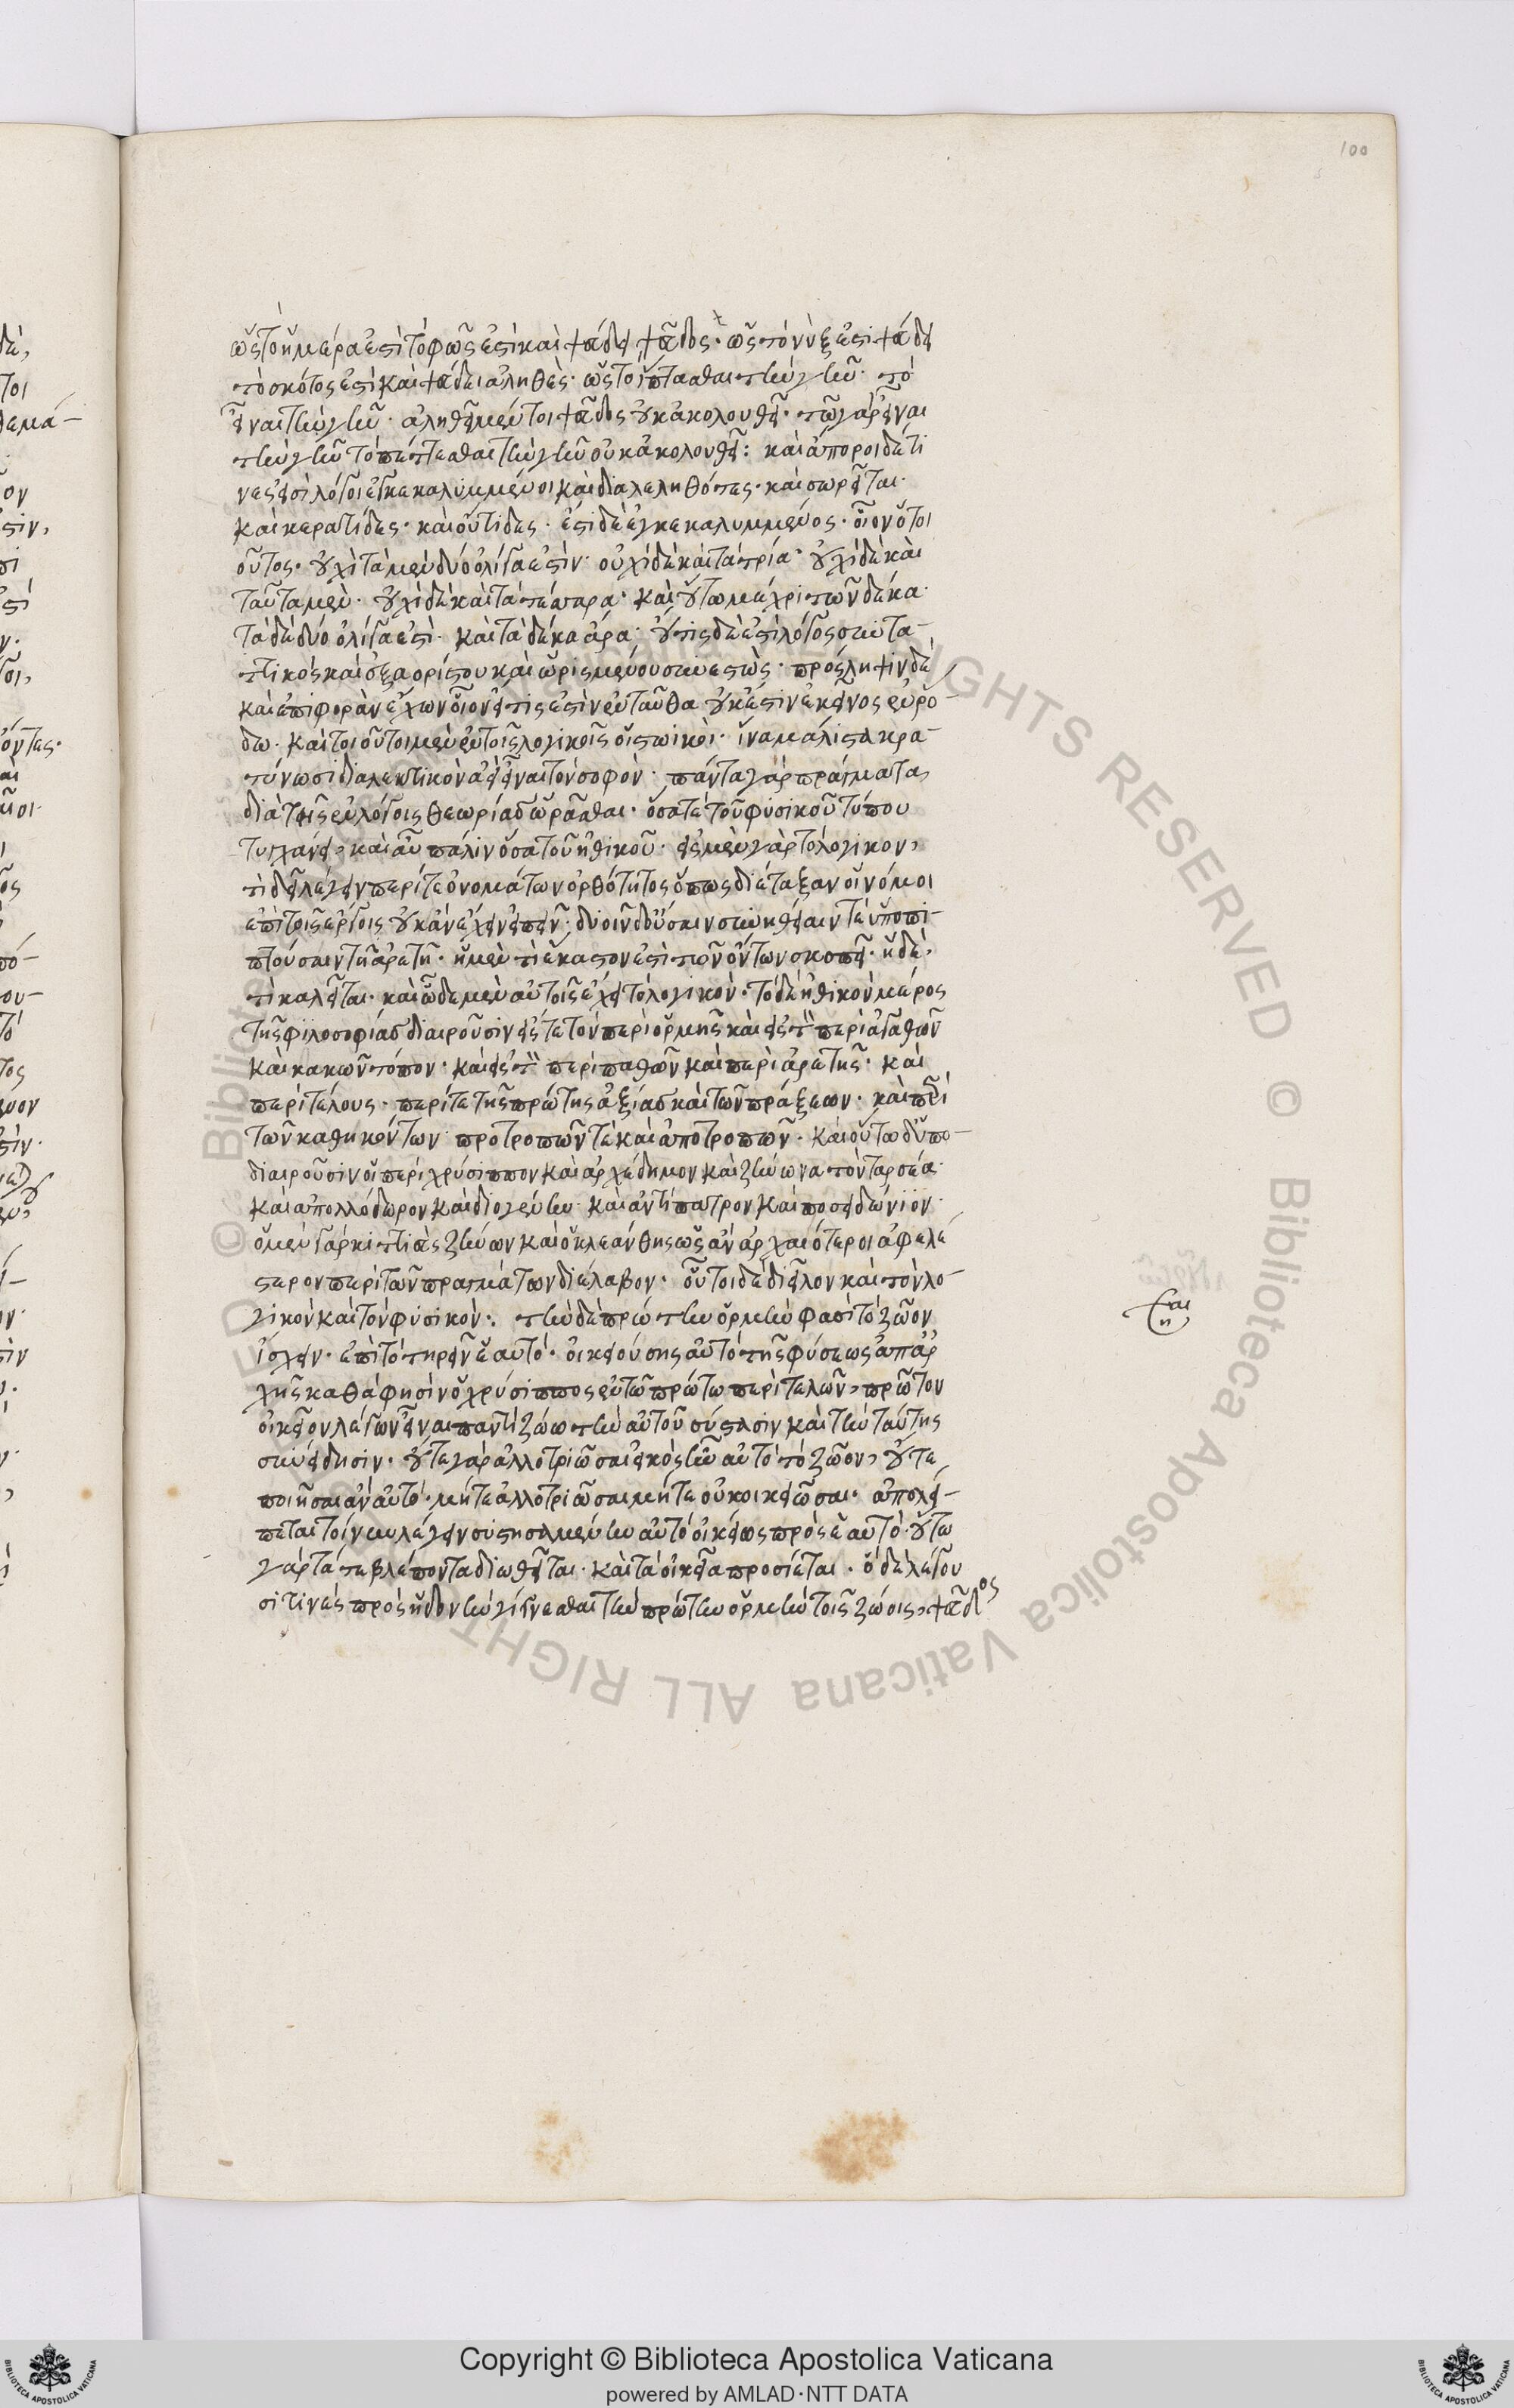 100
ὡς τὸ ἡμέρα ἐστὶ τὸ φῶς ἐστὶ καὶ ψεύδει ψεῦδος· ὡς τὸ νὺξ ἐστὶ ψεύδει
τὸ σκότος ἐστὶ καὶ ψεύδει ἀληθές· ὡς τὸ ἵπτασθαι τὴν γῆν· τὸ
εἶναι τὴν γῆν· ἀληθεῖ μέντοι ψεῦδος οὐκ ἀκολουθεῖ· τῶ γὰρ εἶναι
τὴν γῆν τὸ πέτεσθαι τὴν γῆν οὐκ ἀκολουθεῖ: καὶ ἄποροι δέ τι
νες εἰσὶ λόγοι ἐγκεκαλυμμένοι καὶ διαλεληθότες· καὶ σωρεῖται·
καὶ κερατίδες· καὶ οὔτιδες· ἔστι δὲ ἐγκεκαλυμμένος· οἷον ὅτοι
οὗτος· οὐχὶ τὰ μὲν δύο ὀλίγα ἐστίν· οὐχὶ δὲ καὶ τὰ τρία· οὐχὶ δὲ καὶ
ταῦτα μὲν· οὐχὶ δὲ καὶ τὰ τέσσαρα· καὶ οὕτω μέχρι τῶν δέκα·
τὰ δὲ δύο ὀλίγα ἐστὶ· καὶ τὰ δέκα ἄρα· οὔτις δέ ἐστι λόγος συντα-
τικὸς καὶ ἐξ ἀορίστου καὶ ὡρισμένου συνεστὼς· πρόσληψιν δὲ
καὶ ἐπιφορὰν ἔχων οἷον εἴ τις ἐστὶν ἐνταῦθα οὐκ ἔστιν ἐκεῖνος ἐν ῥό
δω· καὶ τοιοῦτοι μὲν ἐν τοῖς λογικοῖς οἱ στωικοὶ· ἵνα μάλιστα κρα-
τύνωσι διαλεκτικὸν ἀεὶ εἶναι τὸν σοφόν· πάντα γὰρ πράγματα
διὰ τῆς ἐν λόγοις θεωρίας ὁρᾶσθαι· ὅσα τε τοῦ φυσικοῦ τύπου
τυγχάνει, καὶ αὖ πάλιν ὅσα τοῦ ἠθικοῦ· εἰς μὲν γὰρ τὸ λογικον,
τί δεῖ λέγειν περί τε ὀνομάτων ὀρθότητος ὅπως διέταξαν οἱ νόμοι
ἐπὶ τοῖς ἔργοις οὐκ ἂν ἔχειν εἰπεῖν· δυοῖν δ' οὔσαιν συνηθείαιν τὲν ὑποπι-
πτούσαιν τῆ ἀρετῆ· ἡ μὲν τί ἕκαστον ἐστὶ τῶν ὄντων σκοπεῖ· ἡ δὲ,
τί καλεῖται· καὶ ὧδε μὲν αὐτοῖς ἔχει τὸ λογικὸν· τὸ δὲ ἠθικὸν μέρος
τῆς φιλοσοφίας διαιροῦσιν εἴς τε τὸν περὶ ὁρμῆς καὶ εἰς τ περὶ ἀγαθῶν
καὶ κακῶν τόπον· καὶ εἰς τ περὶ παθῶν καὶ περὶ ἀρετῆς· καὶ
περὶ τέλους· περί τε τῆς πρώτης ἀξίας καὶ τῶν πράξεων· καὶ περὶ
τῶν καθηκόντων προτροπῶν τὲ καὶ ἀποτροπῶν· καὶ οὕτω δ' ὑπο-
διαιροῦσιν οἱ περὶ χρύσιππον καὶ ἀρχέδημον καὶ ζήνωνα τὸν ταρσέα·
καὶ ἀπολλόδωρον καὶ διογένην· καὶ ἀντίπατρον καὶ ποσειδώνιον·
ὁ μὲν γὰρ κιττιεὺς ζήνων καὶ ὁ κλεάνθης ὡς ἂν ἀρχαιότεροι ἀφελέ
στερον περὶ τῶν πραγμάτων διέλαβον· οὗτοι δὲ διεῖλον καὶ τὸν λο-
γικὸν καὶ τὸν φυσικόν·. τὴν δὲ πρώτην ὁρμήν φασὶ τὸ ζῶον
ἴσχειν· ἐπὶ τὸ τηρεῖν ἑαυτό· οἰκειούσης αὐτὸ τῆς φύσεως ἀπ' ἀρ
χῆς καθά φησὶν ὁ χρύσιππος ἐν τῶ πρώτω περὶ τελῶν, πρῶτον
οἰκεῖον λέγων εἶναι παντὶ ζώω τὴν αὐτοῦ σύστασιν καὶ τὴν ταύτης
συνείδησιν· οὔτε γὰρ ἀλλοτριῶσαι εἰκὸς ἦν αὐτὸ τὸ ζῶον, οὔτε
ποιῆσαι ἂν αὐτό· μήτε ἀλλοτριῶσαι μήτε οὐκ οἰκειῶσαι· ἀπολεί-
πεται τοίνυν λέγειν συστησαμένην αὐτὸ οἰκείως πρὸς ἑαυτό· οὕτω
γὰρ τά τε βλέποντα διωθεῖται· καὶ τὰ οἰκεῖα προσίεται· ὃ δὲ λέγου
σί τινὲς πρὸς ἡδονὴν γίγνεσθαι τὴν πρώτην ὁρμὴν τοῖς ζώοις, ψεῦδος
Copyright © Biblioteca Apostolica Vaticana
powered by AMLAD·NTT DATA